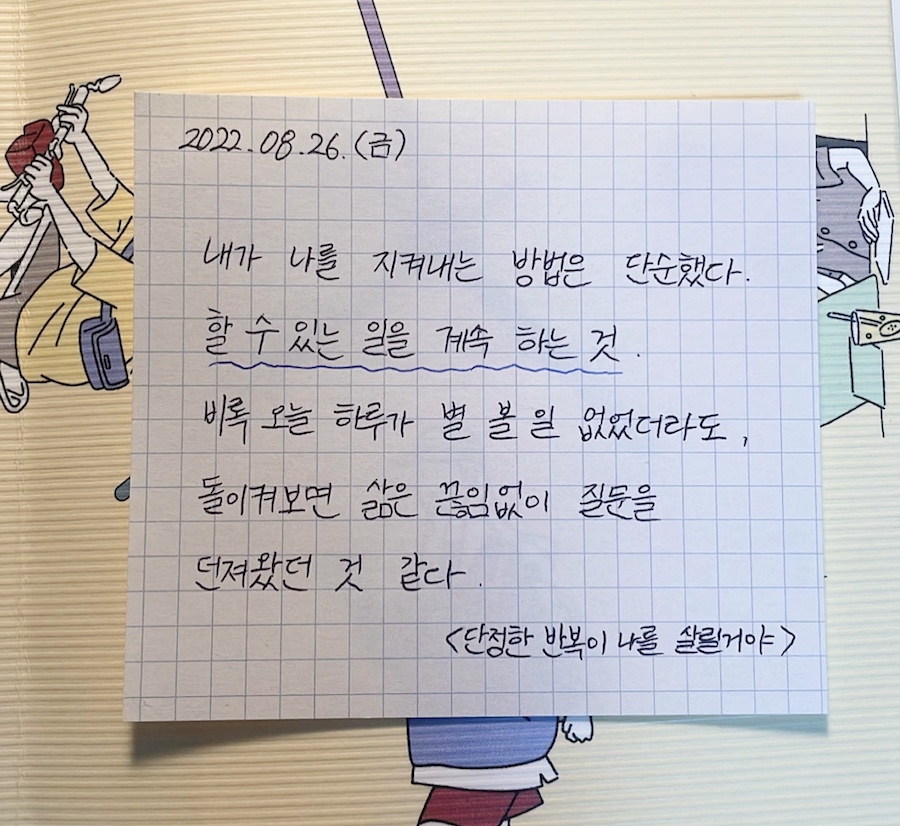 2022.08.26.(금)
내가 나를 지켜내는 방법은 단순했다.
할 수 있는 일을 계속 하는 것.
비록 오늘 하루가 별 볼 일 없었더라도,
돌이켜보면 삶은 끊임없이 질문을
던져왔던 것 같다.
<단정한 반복이 나를 살릴거야>